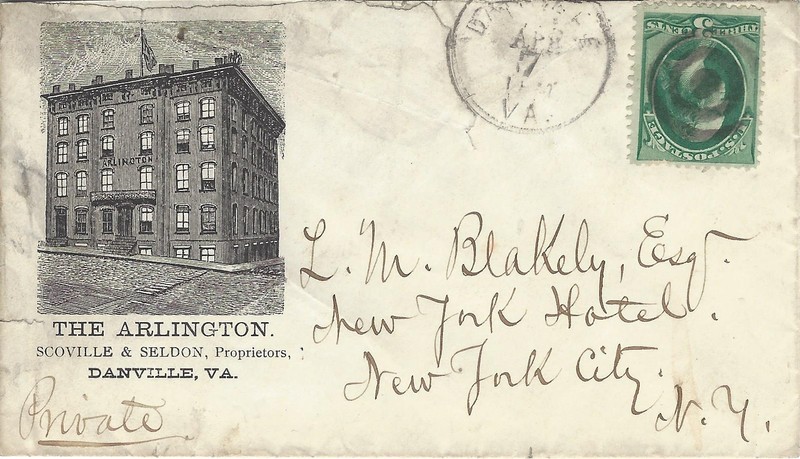 DANVILLE
APR
7
VA.
3
U.S. POSTAGE
ARLINGTON
THE ARLINGTON.
SCOVILLE & SELDON, Proprietors,
DANVILLE, VA.
Private
L. M. Blakely, Esq.
New York Hotel.
New York City.
N.Y.